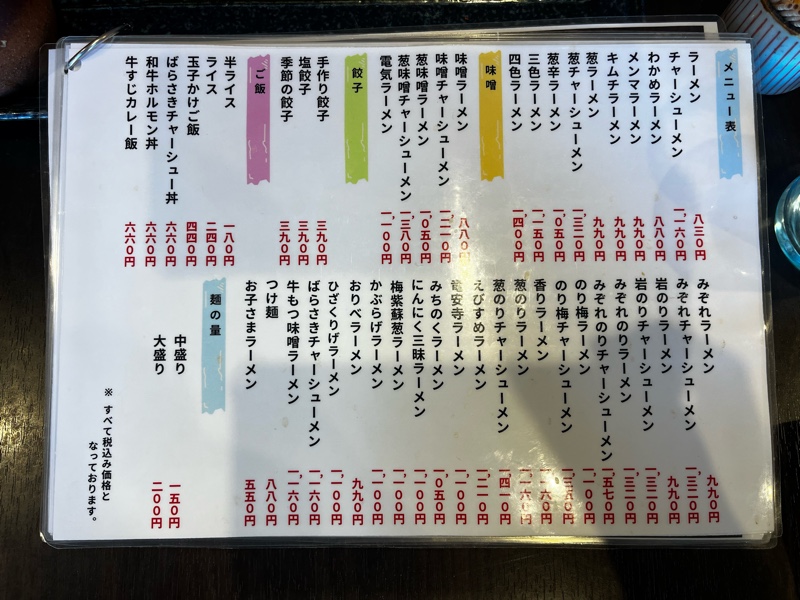 メニュー表
ラーメン 八三〇円
チャーシューメン 一,一六〇円
わかめラーメン 八八〇円
メンマラーメン 九九〇円
キムチラーメン 九九〇円
葱ラーメン 九九〇円
葱チャーシューメン 一,三二〇円
葱辛ラーメン 一,〇五〇円
三色ラーメン 一,一五〇円
四色ラーメン 一,四〇〇円
味噌
味噌ラーメン 八八〇円
味噌チャーシューメン 一,二一〇円
葱味噌ラーメン 一,〇五〇円
葱味噌チャーシューメン 一,三八〇円
電気ラーメン 一,一〇〇円
餃子
手作り餃子 三九〇円
塩餃子 三九〇円
季節の餃子 三九〇円
ご飯
半ライス 一八〇円
ライス 二四〇円
玉子かけご飯 四四〇円
ばらさきチャーシュー丼 六六〇円
和牛ホルモン丼 六六〇円
牛すじカレー飯 六六〇円
みぞれラーメン 九九〇円
みぞれチャーシューメン 一,三二〇円
岩のりラーメン 九九〇円
岩のりチャーシューメン 一,三二〇円
みぞれのりラーメン 一,三二〇円
みぞれのりチャーシューメン 一,五七〇円
のり梅ラーメン 一,一〇〇円
のり梅チャーシューメン
香りラーメン 一,一六〇円
葱のりラーメン 一,一六〇円
葱のりチャーシューメン 一,四一〇円
えびすめラーメン 一,二一〇円
竜安寺ラーメン 一,一〇〇円
みちのくラーメン 一,〇五〇円
にんにく三昧ラーメン 一,一〇〇円
梅紫蘇葱ラーメン 一,一〇〇円
かぶらげラーメン 一,一〇〇円
おりべラーメン 九九〇円
ひざくりげラーメン 一,一〇〇円
ばらさきチャーシューメン 一,一六〇円
牛もつ味噌ラーメン 一,一六〇円
つけ麺 八八〇円
お子さまラーメン 五五〇円
麺の量
中盛り 一五〇円
大盛り 二〇〇円
※ すべて税込み価格と
なっております。